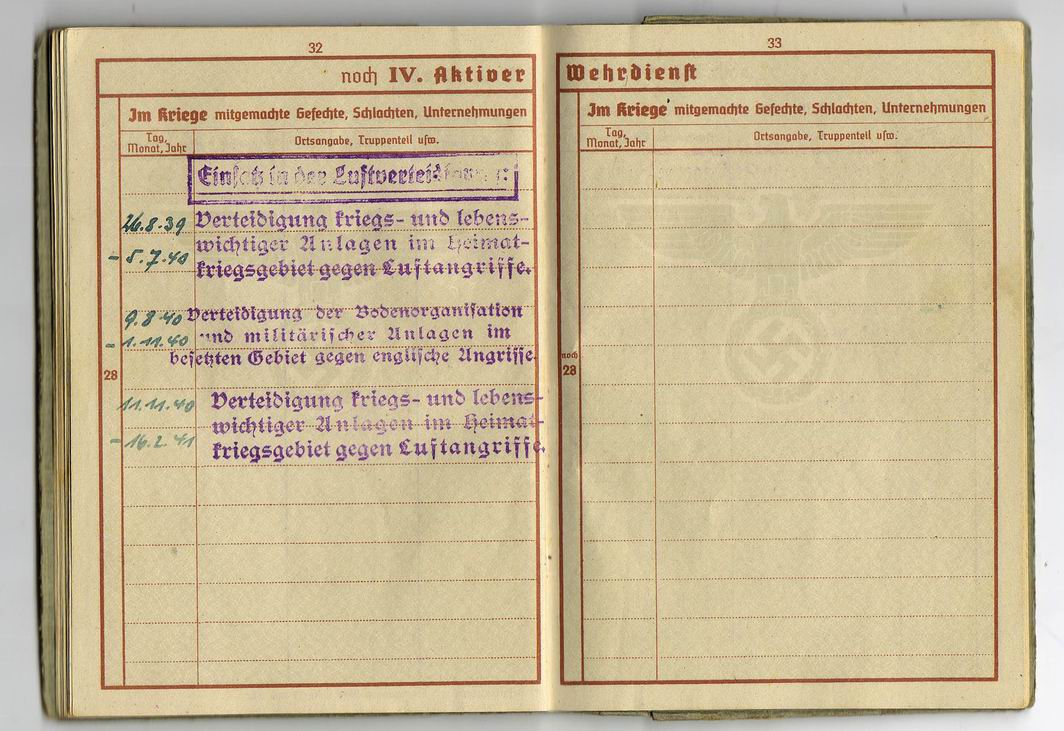 32
noch IV. Aktiver
Im Kriege mitgemachte Gefechte, Schlachten, Unternehmungen
Tag,
Monat, Jahr
Ortsangabe, Truppenteil usw.
Einsatz in der Luftverteidigung:
26.8.39 Verteidigung kriegs- und lebens-
wichtiger Anlagen im Heimat-
- 5.7.40 kriegsgebiet gegen Luftangriffe.
9.8.40 Verteidigung der Bodenorganisation
- 1.11.40 und militärischer Anlagen im
besetzten Gebiet gegen englische Angriffe.
28
11.11.40 Verteidigung kriegs- und lebens-
wichtiger Anlagen im Heimat-
- 16.2.41 kriegsgebiet gegen Luftangriffe.
33
Wehrdienst
Im Kriege mitgemachte Gefechte, Schlachten, Unternehmungen
Tag,
Monat, Jahr
Ortsangabe, Truppenteil usw.
noch
28